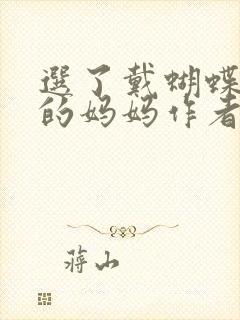 選了戴蝴蝶
的妈妈作者
蔣山